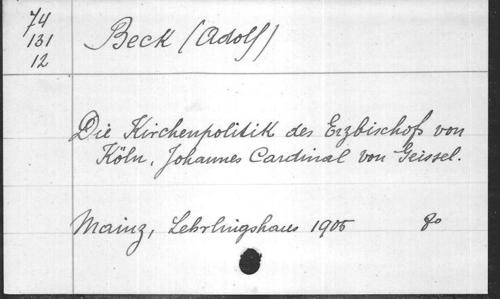 74
131
12
Beck (Adolf)
Die Kirchenpolitik des Erzbischofs von
Köln, Johannes Cardinal von Geissel.
Mainz, Lehrlingshaus 1905 8o